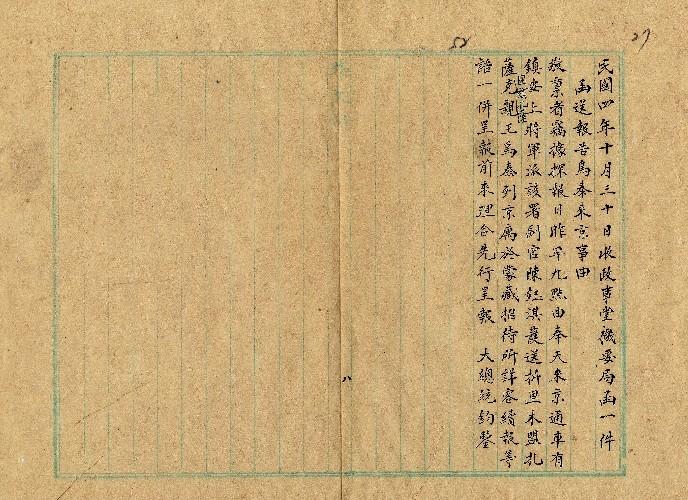 27
民國四年十月三十日收政事堂機要局函一件
函送報告烏泰來京事由
敬稟者竊據探報日昨早九點由奉天來京通車有
鎮安上將軍派該署副官陳鈺淇護送折里木盟扎
薩克親王烏泰到京寓於蒙藏招待所詳容續報等
語一併呈報前來理合先行呈報 大總統鈞鑒
八